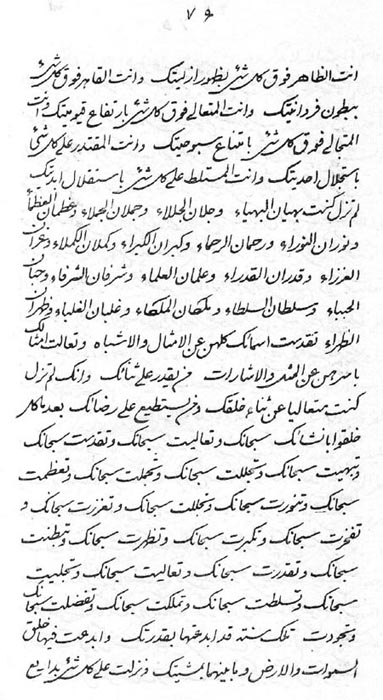 ٧٩
انت الظاهر فوق كلشئ بظهور ازليتك وانت القاهر فوق كلشئ
ببطون فردانيتك وانت المتعالى فوق كلشئ بارتفاع قيوميتك وانت
المتعالى فوق كلشئ بامتناع سبوحيتك وانت المقتدر على كلشئ
باستجلال احديتك وانت المتسلط على كلشئ باستقلال ابديتك
لم تزل كنت بهيان البهياء وجلان الجللاء وجملان الجملاء وعظمان العظماء
ونوران النوراء ورحمان الرحماء وكبران الكبراء وكملان الكملاء وعزران
العززاء وقدران القدراء وعلمان العلماء وشرفان الشرفاء وحبان
الحبباء وسلطان السلطاء وملكان الملكاء وغلبان الغلباء وظهران
الظهراء تقدست اسمائك كلهن عن الامثال والاشباه وتعالت امثالك
باسرهن عن المثل والاشارات من يقدر على ثنائك وانك لم تزل
كنت متعاليا عن ثناء خلقك ومن يستطيع على رضائك بعد ما كل
خلقوا بانشائك سبحانك وتعاليت سبحانك وتقدست سبحانك
وتبهيت سبحانك وتجللت سبحانك وتجملت سبحانك وتعظمت
سبحانك وتنورت سبحانك وتجللت سبحانك وتعززت سبحانك و
تفخرت سبحانك وتكبرت سبحانك وتظهرت سبحانك وتبطنت
سبحانك وتقدرت سبحانك وتعاليت سبحانك وتجليت
سبحانك وتسلطت سبحانك وتملكت سبحانك وتفضلت سبحانك
وتجودت تلك سنة قد ابدعتها بقدرتك وابدعت فيها خلق
السموات والارض وما بينهما بمشيتك ونزلت على كلشئ بدايع